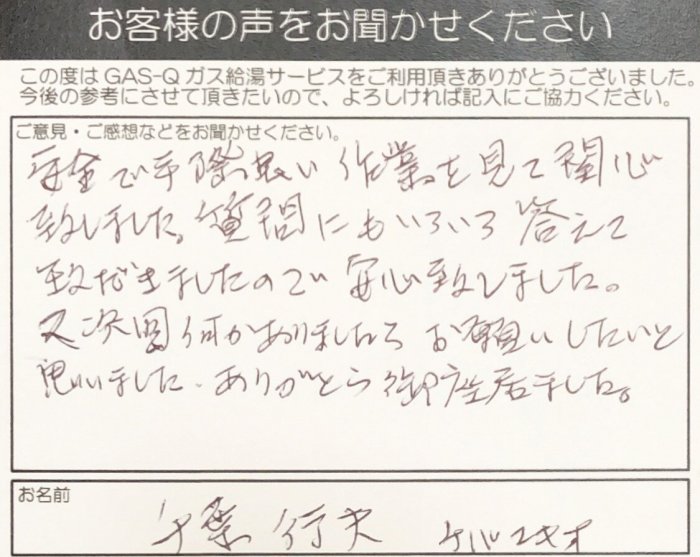 お客様の声をお聞かせください
この度はGAS-Qガス給湯サービスをご利用頂きありがとうございました。
今後の参考にさせて頂きたいので、よろしければ記入にご協力ください。
ご意見・ご感想などをお聞かせください。
安全で手際良い作業を見て関心
致しました。質問にもいろいろ答えて
致だきましたので安心致しました。
又次回何かありましたらお願いしたいと
思いました。ありがとう御座居ました。
お名前
千葉 行夫 チバ ユキオ